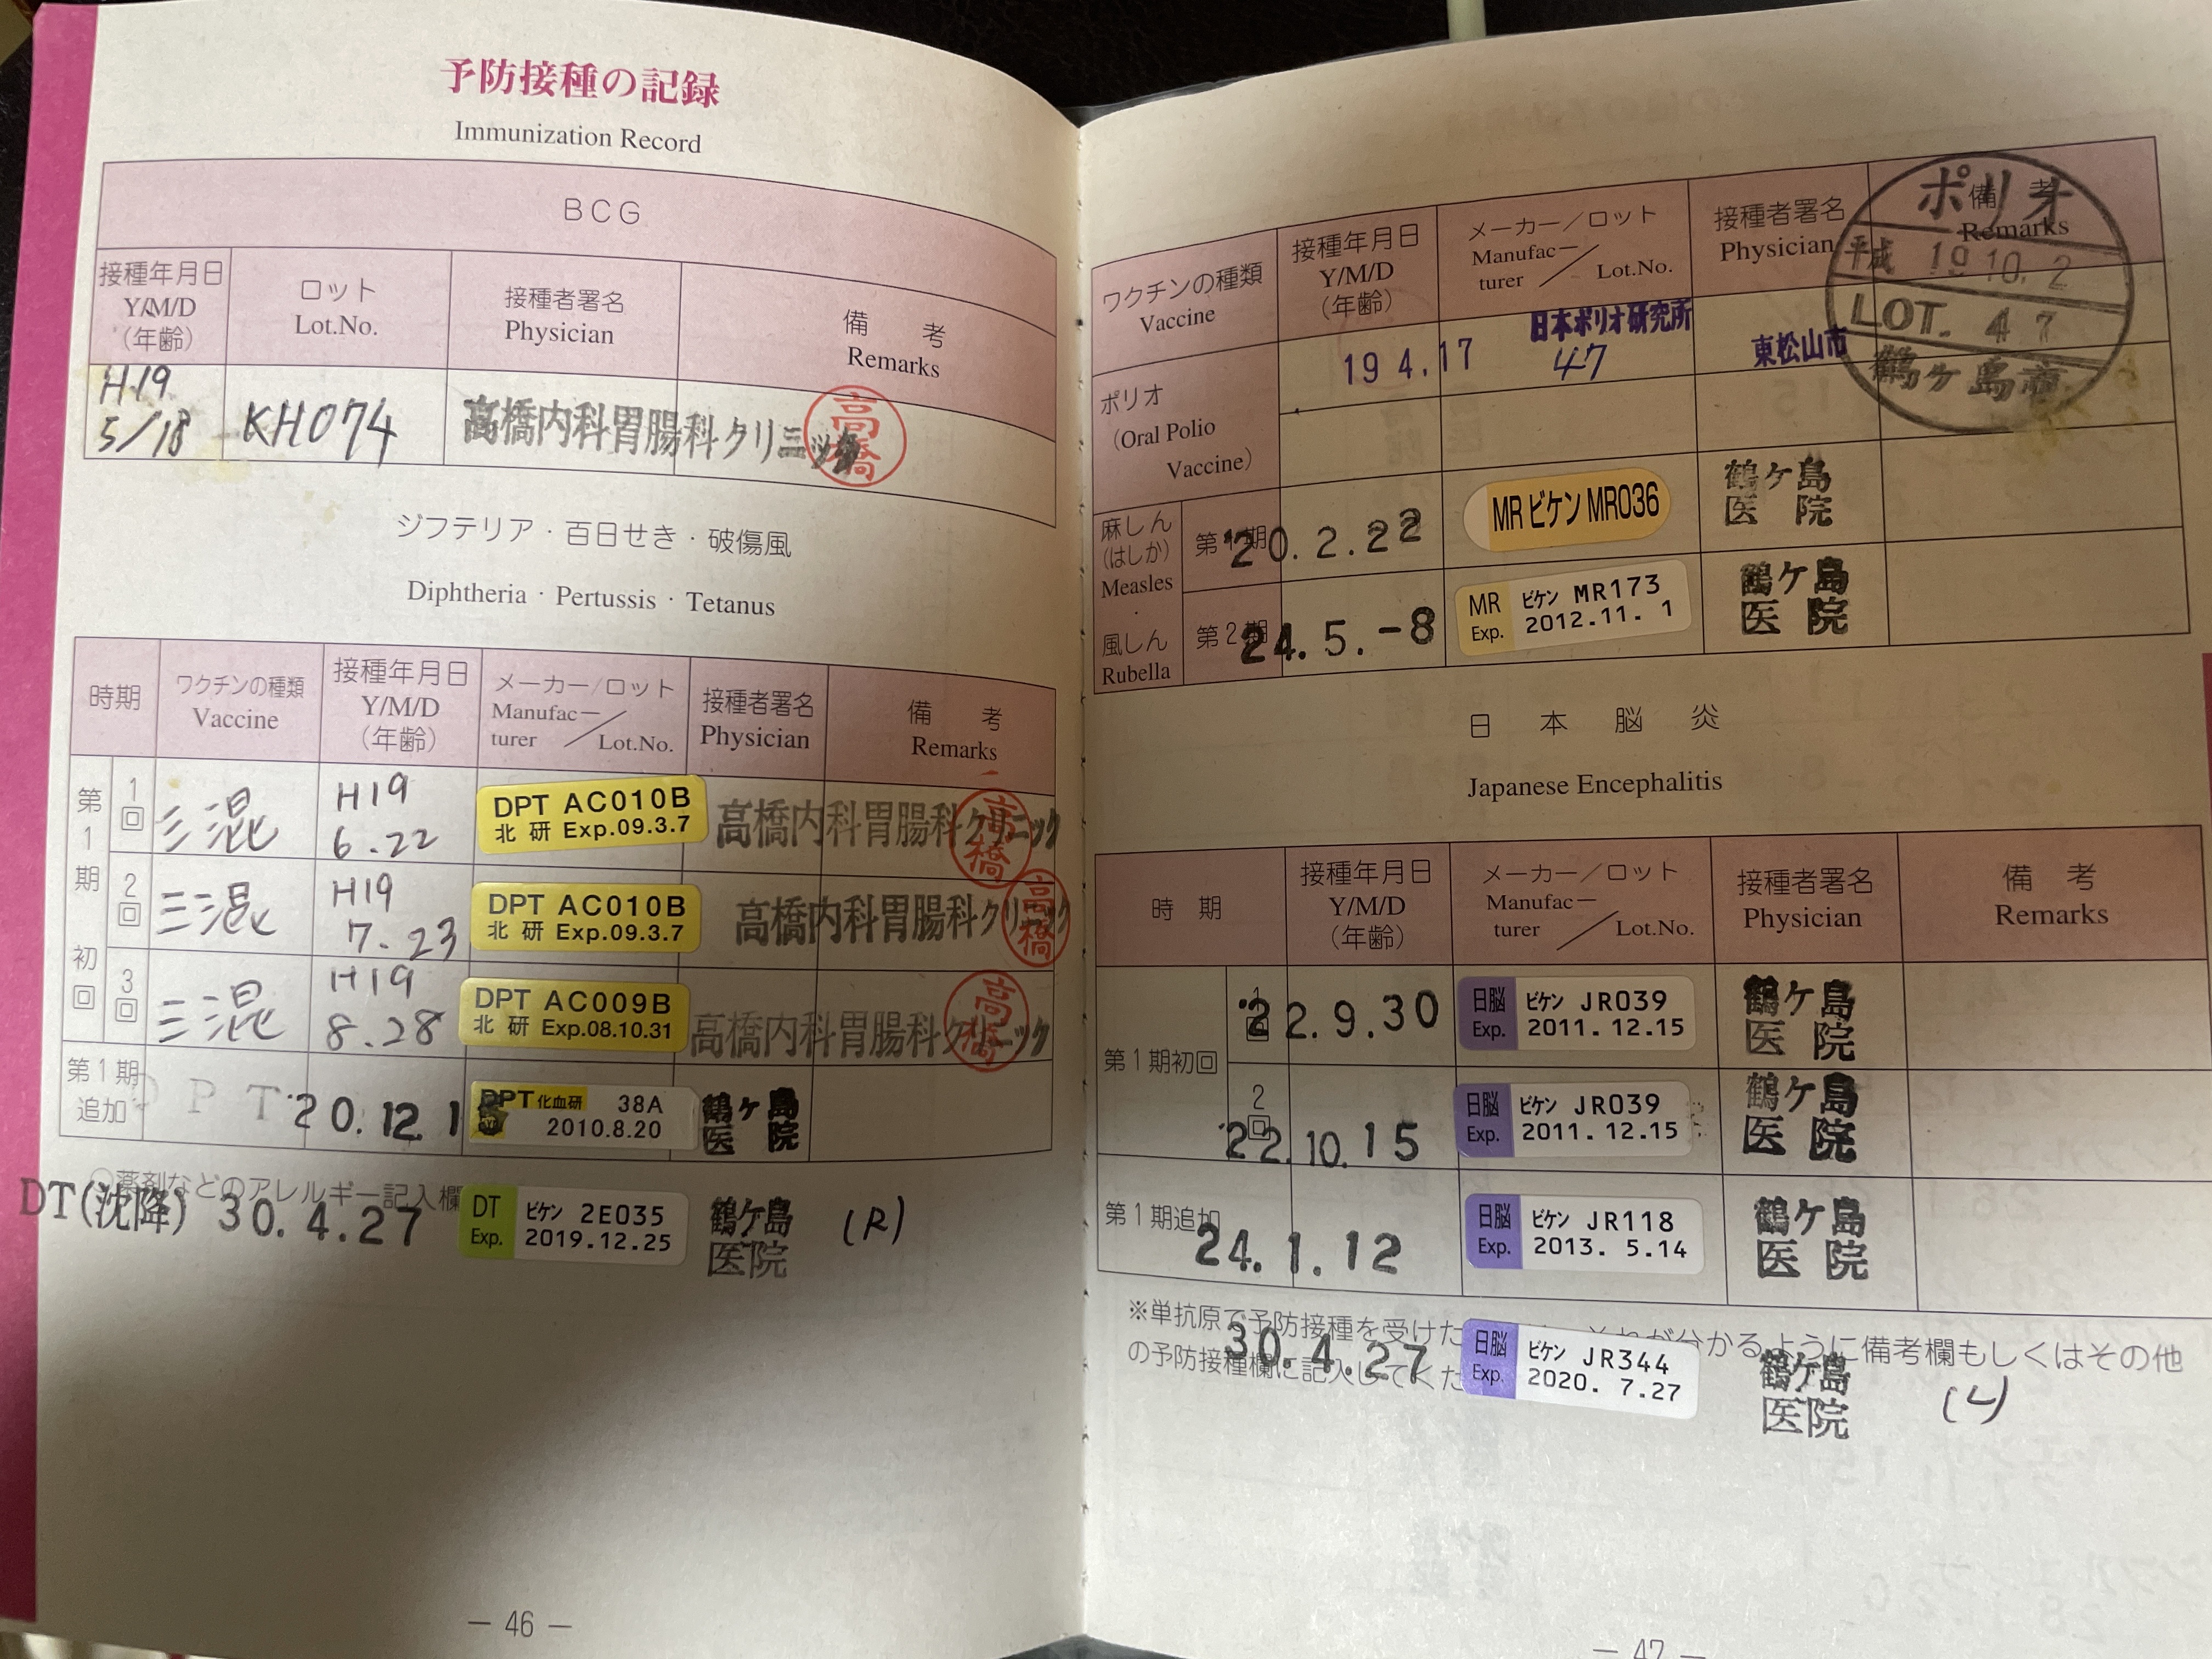 予防接種の記録
Immunization Record
BCG
接種年月日
Y/M/D
(年齢)
ロット
Lot.No.
接種者署名
Physician
備 考
Remarks
H19.
5/18
KH074
高橋内科胃腸科クリニック
高橋
ジフテリア・百日せき・破傷風
Diphtheria · Pertussis · Tetanus
時期
ワクチンの種類
Vaccine
接種年月日
Y/M/D
(年齢)
メーカー/ロット
Manufac-
turer
Lot.No.
接種者署名
Physician
備 考
Remarks
第1期 初回
1回
三混
H19
6.22
DPT AC010B
北研 Exp.09.3.7
高橋内科胃腸科クリニック
高橋
2回
三混
H19
7.23
DPT AC010B
北研 Exp.09.3.7
高橋内科胃腸科クリニック
高橋
3回
三混
H19
8.28
DPT AC009B
北研 Exp.08.10.31
高橋内科胃腸科クリニック
高橋
第1期
追加
DPT
20.12.1
DPT 化血研 38A
2010.8.20
鶴ヶ島
医院
○薬剤などのアレルギー記入欄
DT(沈降) 30.4.27
DT ビケン 2E035
Exp. 2019.12.25
鶴ヶ島
医院
(R)
— 46 —
ワクチンの種類
Vaccine
接種年月日
Y/M/D
(年齢)
メーカー/ロット
Manufac-
turer
Lot.No.
接種者署名
Physician
備 考
Remarks
ポリオ
平成 19 10.2
LOT. 47
鶴ヶ島市
ポリオ
(Oral Polio
Vaccine)
19 4.17
日本ポリオ研究所
47
東松山市
麻しん
(はしか)
Measles
·
風しん
Rubella
第1期
20.2.22
MR ビケン MR036
鶴ケ島
医院
第2期
24.5.-8
MR ビケン MR173
Exp. 2012.11. 1
鶴ケ島
医院
日本脳炎
Japanese Encephalitis
時 期
接種年月日
Y/M/D
(年齢)
メーカー/ロット
Manufac-
turer
Lot.No.
接種者署名
Physician
備 考
Remarks
第1期初回
1回
22.9.30
日脳 ビケン JR039
Exp. 2011.12.15
鶴ケ島
医院
2回
22.10.15
日脳 ビケン JR039
Exp. 2011.12.15
鶴ケ島
医院
第1期追加
24.1.12
日脳 ビケン JR118
Exp. 2013. 5.14
鶴ケ島
医院
※単抗原で予防接種を受けた
が分かるように備考欄もしくはその他
の予防接種欄に記入してくだ
30.4.27
日脳 ビケン JR344
Exp. 2020. 7.27
鶴ケ島
医院
(L)
— 47 —